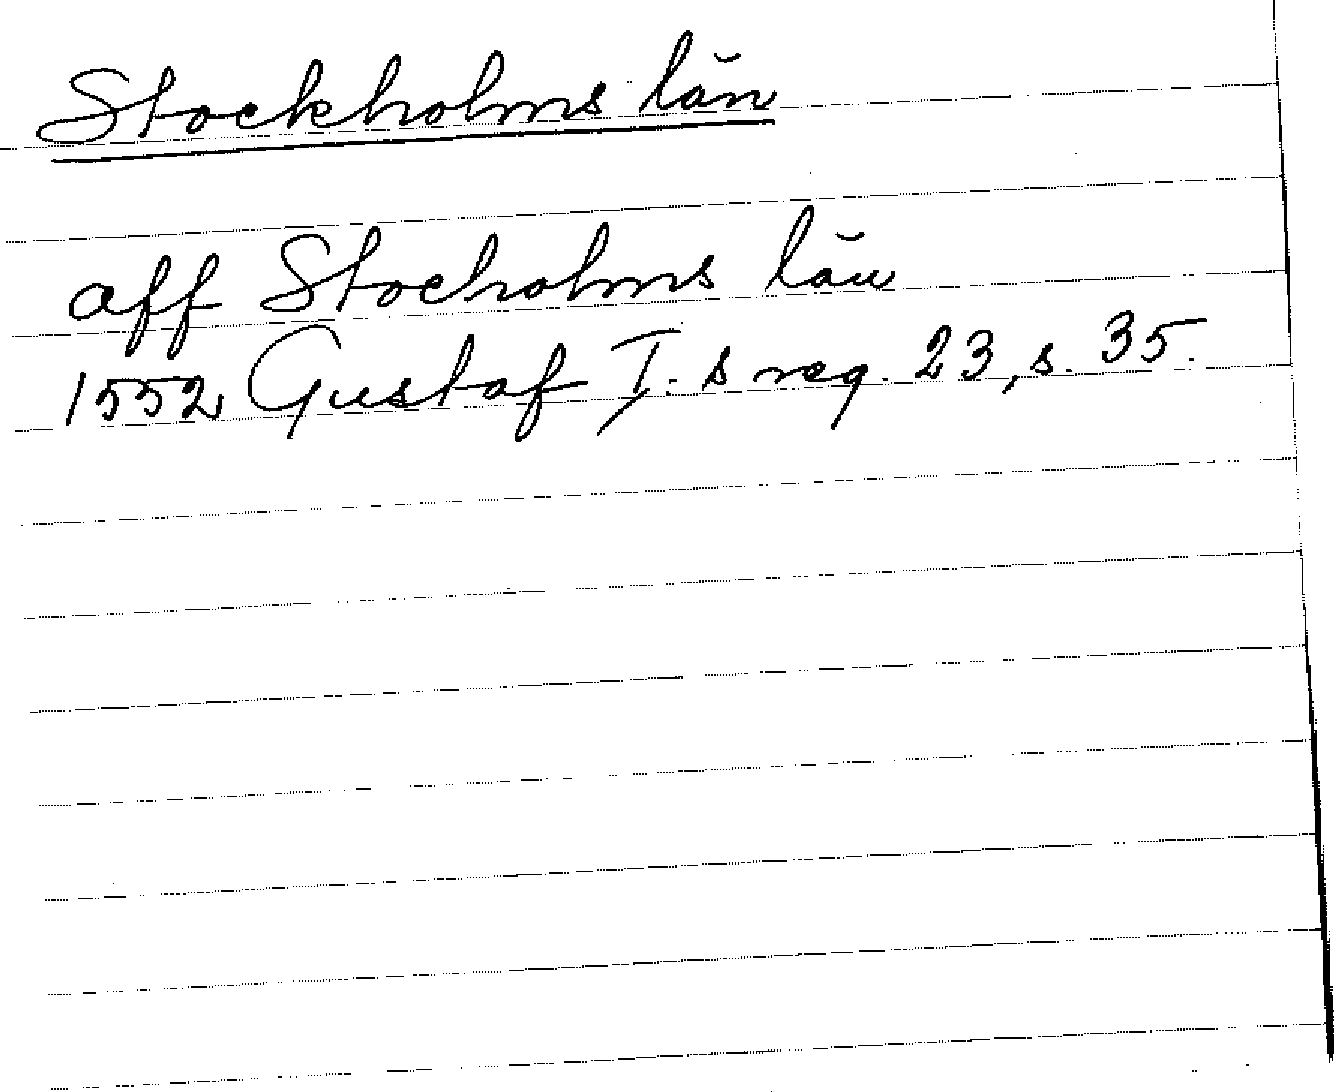 Stockholms län
aff Stocholms län
1552 Gustaf I:s reg. 23, s. 35.